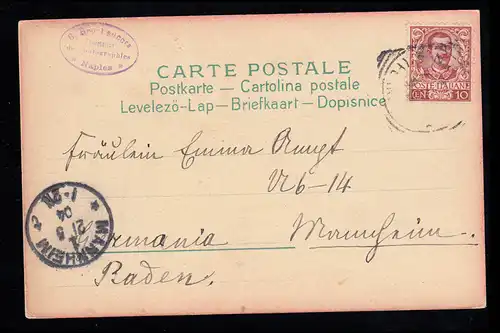 Naples
CARTE POSTALE
Postkarte — Cartolina postale
Levelező-Lap — Briefkaart — Dopisnice
POSTE ITALIANE
CEN 10
Fräulein Emma
U6-14
Germania Mannheim.
Baden.
MANNHEIM 2